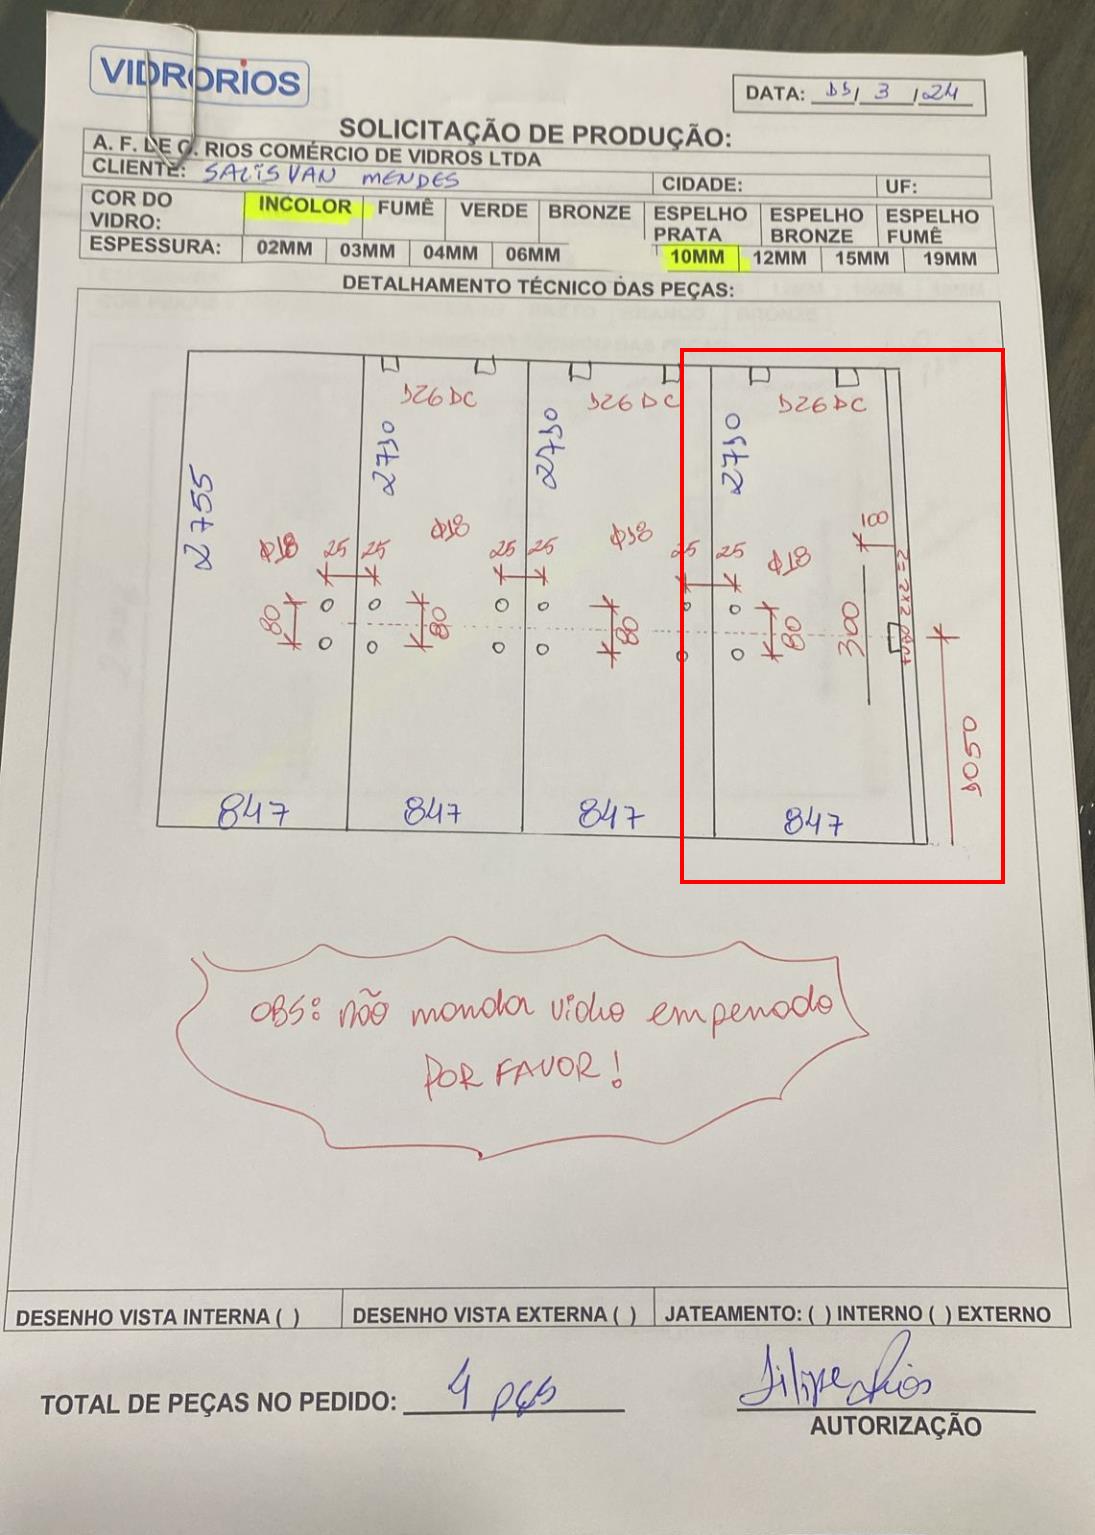 VIDRORIOS
DATA: 05/ 3 /24
SOLICITAÇÃO DE PRODUÇÃO:
A. F. DE O. RIOS COMÉRCIO DE VIDROS LTDA
CLIENTE: SALISVAN MENDES CIDADE: UF:
COR DO VIDRO: INCOLOR FUMÊ VERDE BRONZE ESPELHO PRATA ESPELHO BRONZE ESPELHO FUMÊ
ESPESSURA: 02MM 03MM 04MM 06MM 10MM 12MM 15MM 19MM
DETALHAMENTO TÉCNICO DAS PEÇAS:
526DC 526DC 526DC
2755 2730 2730 2730
Ø18 25 25 Ø18 25 25 Ø18 25 25 Ø18 100
80 80 80 80 300
1050
847 847 847 847
OBS: não mandar vidro empenado
POR FAVOR!
DESENHO VISTA INTERNA ( ) DESENHO VISTA EXTERNA ( ) JATEAMENTO: ( ) INTERNO ( ) EXTERNO
TOTAL DE PEÇAS NO PEDIDO: 4 pçs
Filipe Rios
AUTORIZAÇÃO